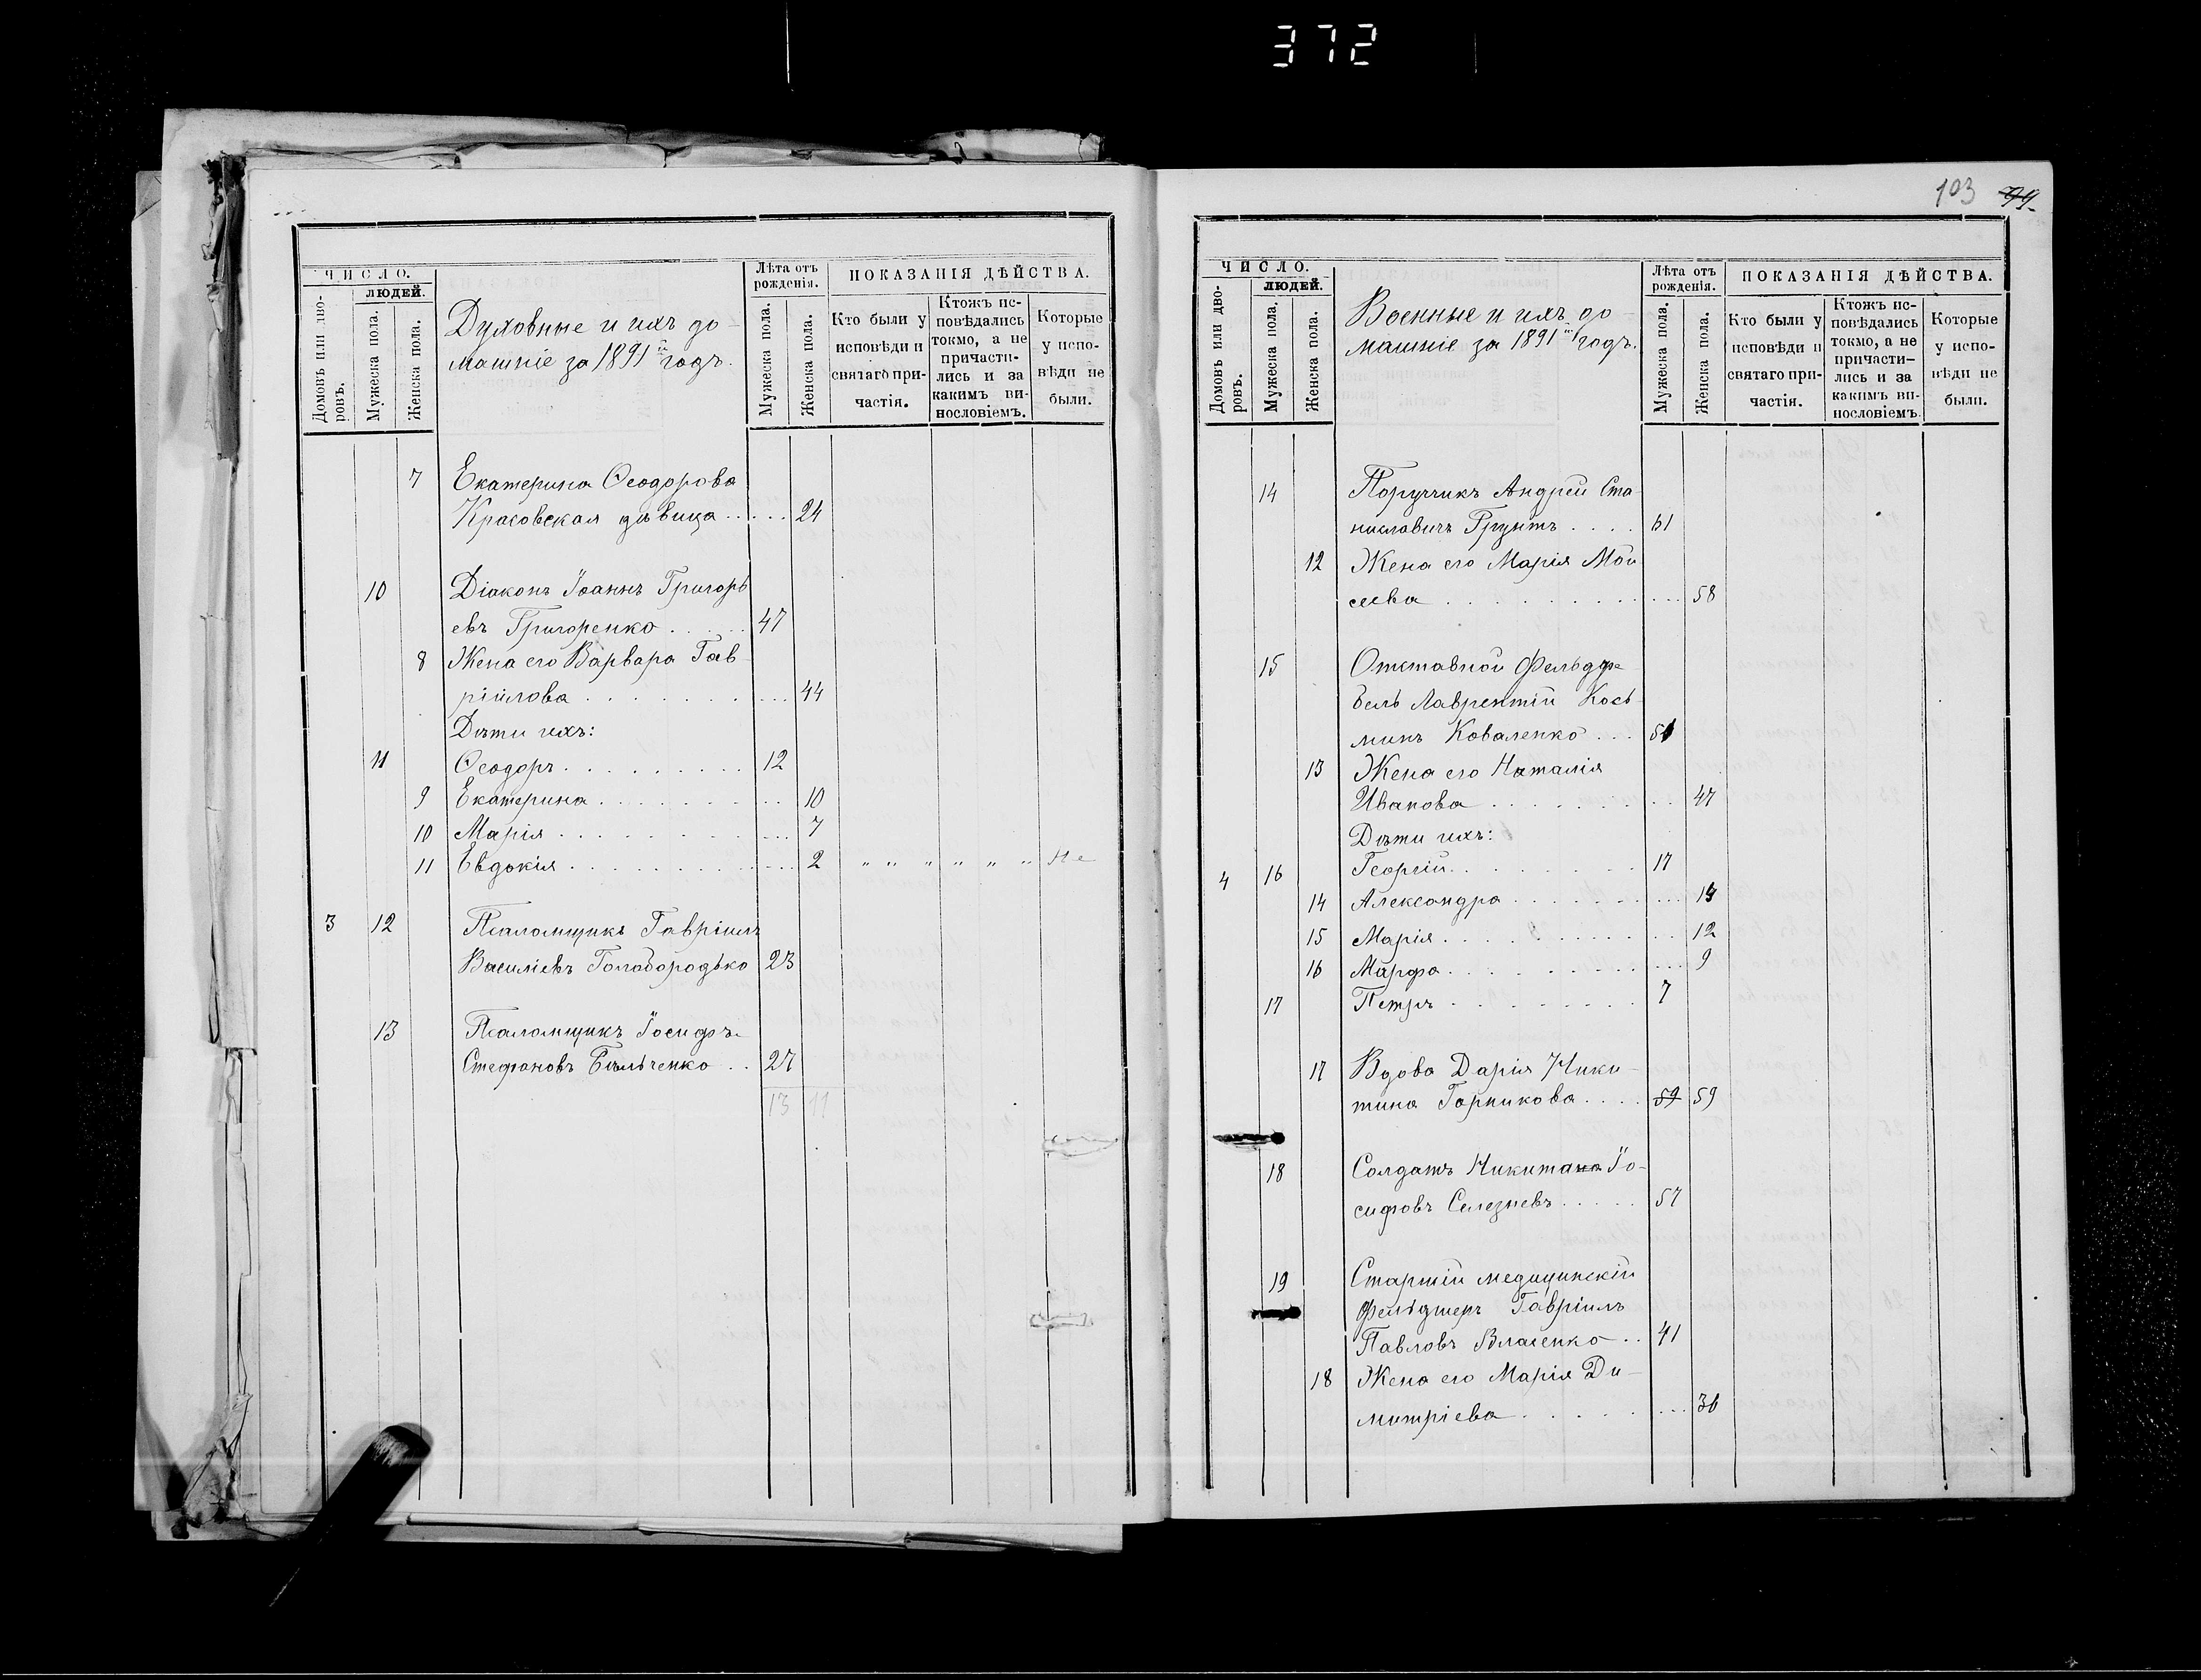 372
ЧИСЛО.
ЛЮДЕЙ.
Домовъ или дворовъ.
Мужеска пола.
Женска пола.
Духовные и ихъ до-
машніе за 1891й годъ.
Лѣта отъ
рожденія.
Мужеска пола.
Женска пола.
ПОКАЗАНІЯ ДѢЙСТВА.
Кто были у
исповѣди и
святаго при-
частія.
Ктожъ ис-
повѣдались
токмо, а не
причасти-
лись и за
какимъ ви-
нословіемъ.
Которые
у испо-
вѣди не
были.
7 Екатерина Ѳеодорова
Красовская дѣвица ..... 24
10 Діаконъ Іоаннъ Григорь
евъ Григоренко ..... 47
8 Жена его Варвара Гав-
ріилова ........ 44
Дѣти ихъ:
11 Ѳеодоръ ......... 12
9 Екатерина ......... 10
10 Марія .......... 7
11 Евдокія ............ 2 " " " " " " Не
3 12 Псаломщикъ Гавріилъ
Василіевъ Голобородько 23
13 Псаломщикъ Іосифъ
Стефановъ Бѣльченко .. 27
13 11
103 99
ЧИСЛО.
ЛЮДЕЙ.
Домовъ или дворовъ.
Мужеска пола.
Женска пола.
Военные и ихъ до-
машніе за 1891й годъ.
Лѣта отъ
рожденія.
Мужеска пола.
Женска пола.
ПОКАЗАНІЯ ДѢЙСТВА.
Кто были у
исповѣди и
святаго при-
частія.
Ктожъ ис-
повѣдались
токмо, а не
причасти-
лись и за
какимъ ви-
нословіемъ.
Которые
у испо-
вѣди не
были.
14 Поручикъ Андрей Ста-
ниславичъ Грунтъ .... 61
12 Жена его Марія Мои
сеева ............ 58
15 Отставной Фельдфе
бель Лаврентій Кось-
минъ Коваленко ... 51
13 Жена его Наталія
Иванова ......... 47
Дѣти ихъ:
4 16 Георгій ........ 17
14 Александра ......... 14
15 Марія ............ 12
16 Марфа ............ 9
17 Петръ ......... 7
17 Вдова Дарія Ники-
тина Горникова .... 59 59
18 Солдатъ Никитана Іо-
сифовъ Селезневъ ..... 57
19 Старшій медицинскій
Фельдшеръ Гавріилъ
Павловъ Власенко .. 41
18 Жена его Марія Ди-
митріева ........ 36